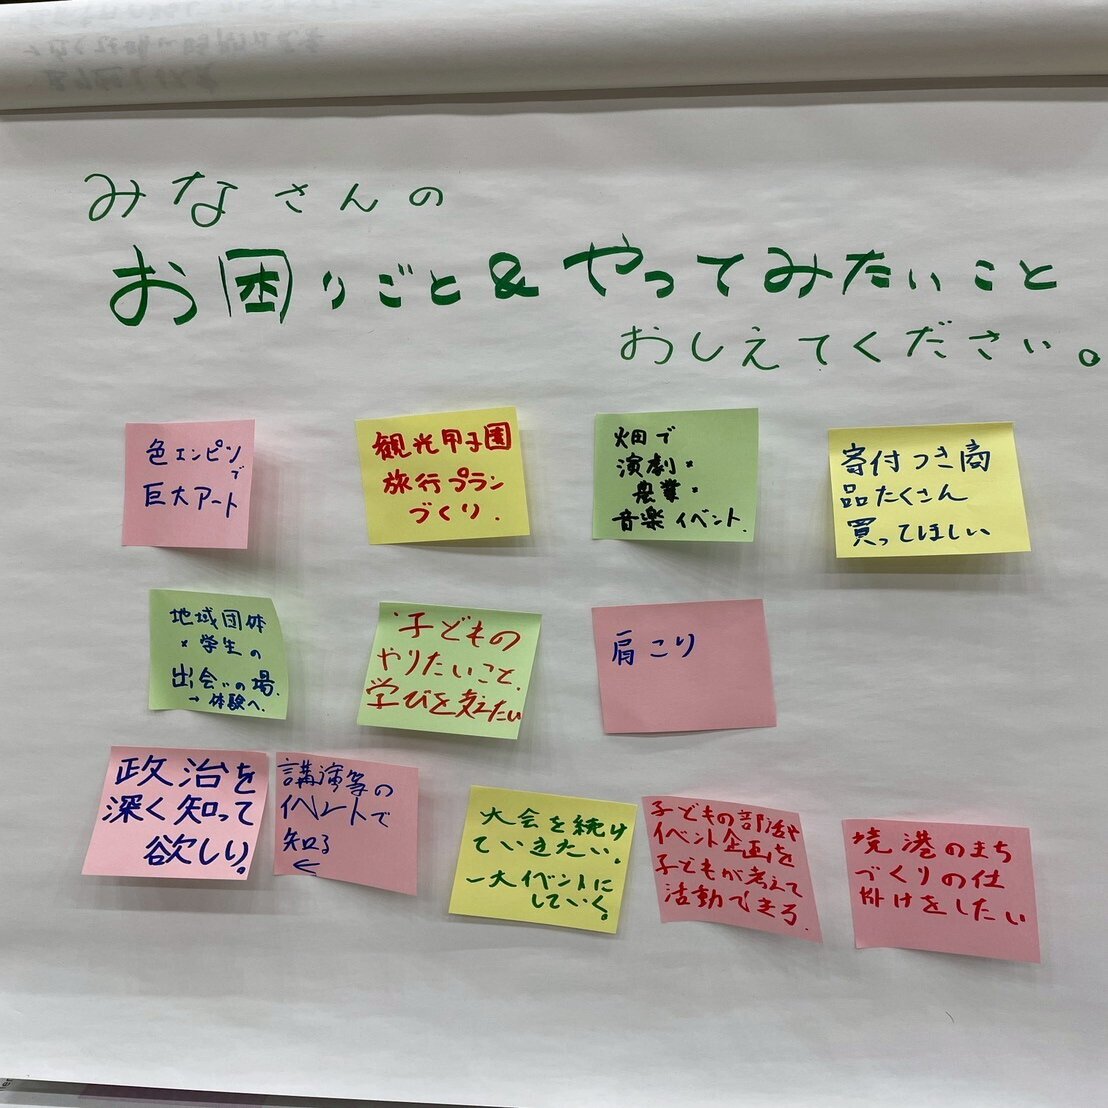 みなさんの
お困りごと&やってみたいこと
おしえてください。
色エンピツ
で
巨大アート
観光甲子園
旅行プラン
づくり.
畑で
演劇×
農業×
音楽イベント.
寄付つき商
品たくさん
買ってほしい
地域団体
×学生の
出会いの場.
→体験へ.
子どもの
やりたいこと.
学びを支えたい
肩こり
政治を
深く知って
欲しい!
講演等の
イベントで
知る
←
大会を続け
ていきたい.
一大イベントに
していく。
子どもの部活や
イベント企画を
子どもが考えて
活動できる.
境港のまち
づくりの仕
掛けをしたい